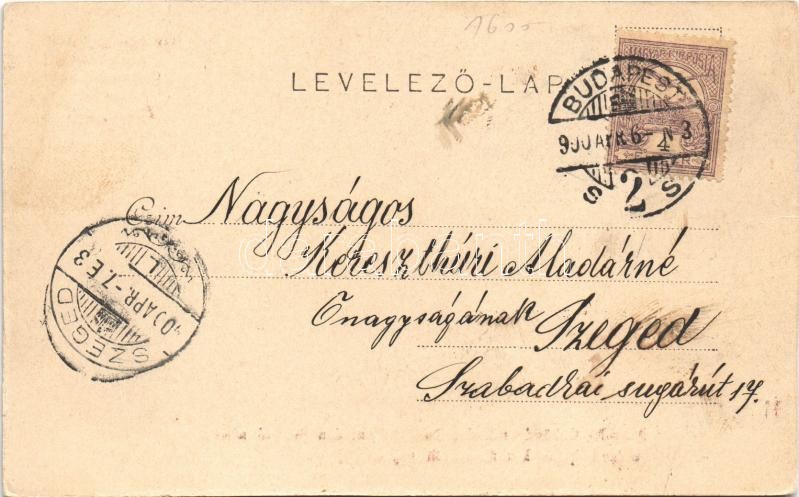 1600
LEVELEZŐ-LAP
MAGYAR KIR. POSTA
BUDAPEST
900 APR. 6 - N 3
Czim
Nagyságos
Kereszthúri Aladárné
Őnagyságának
Szeged
Szabadkai sugárút 17.
SZEGED
900 APR. - 7. E 3